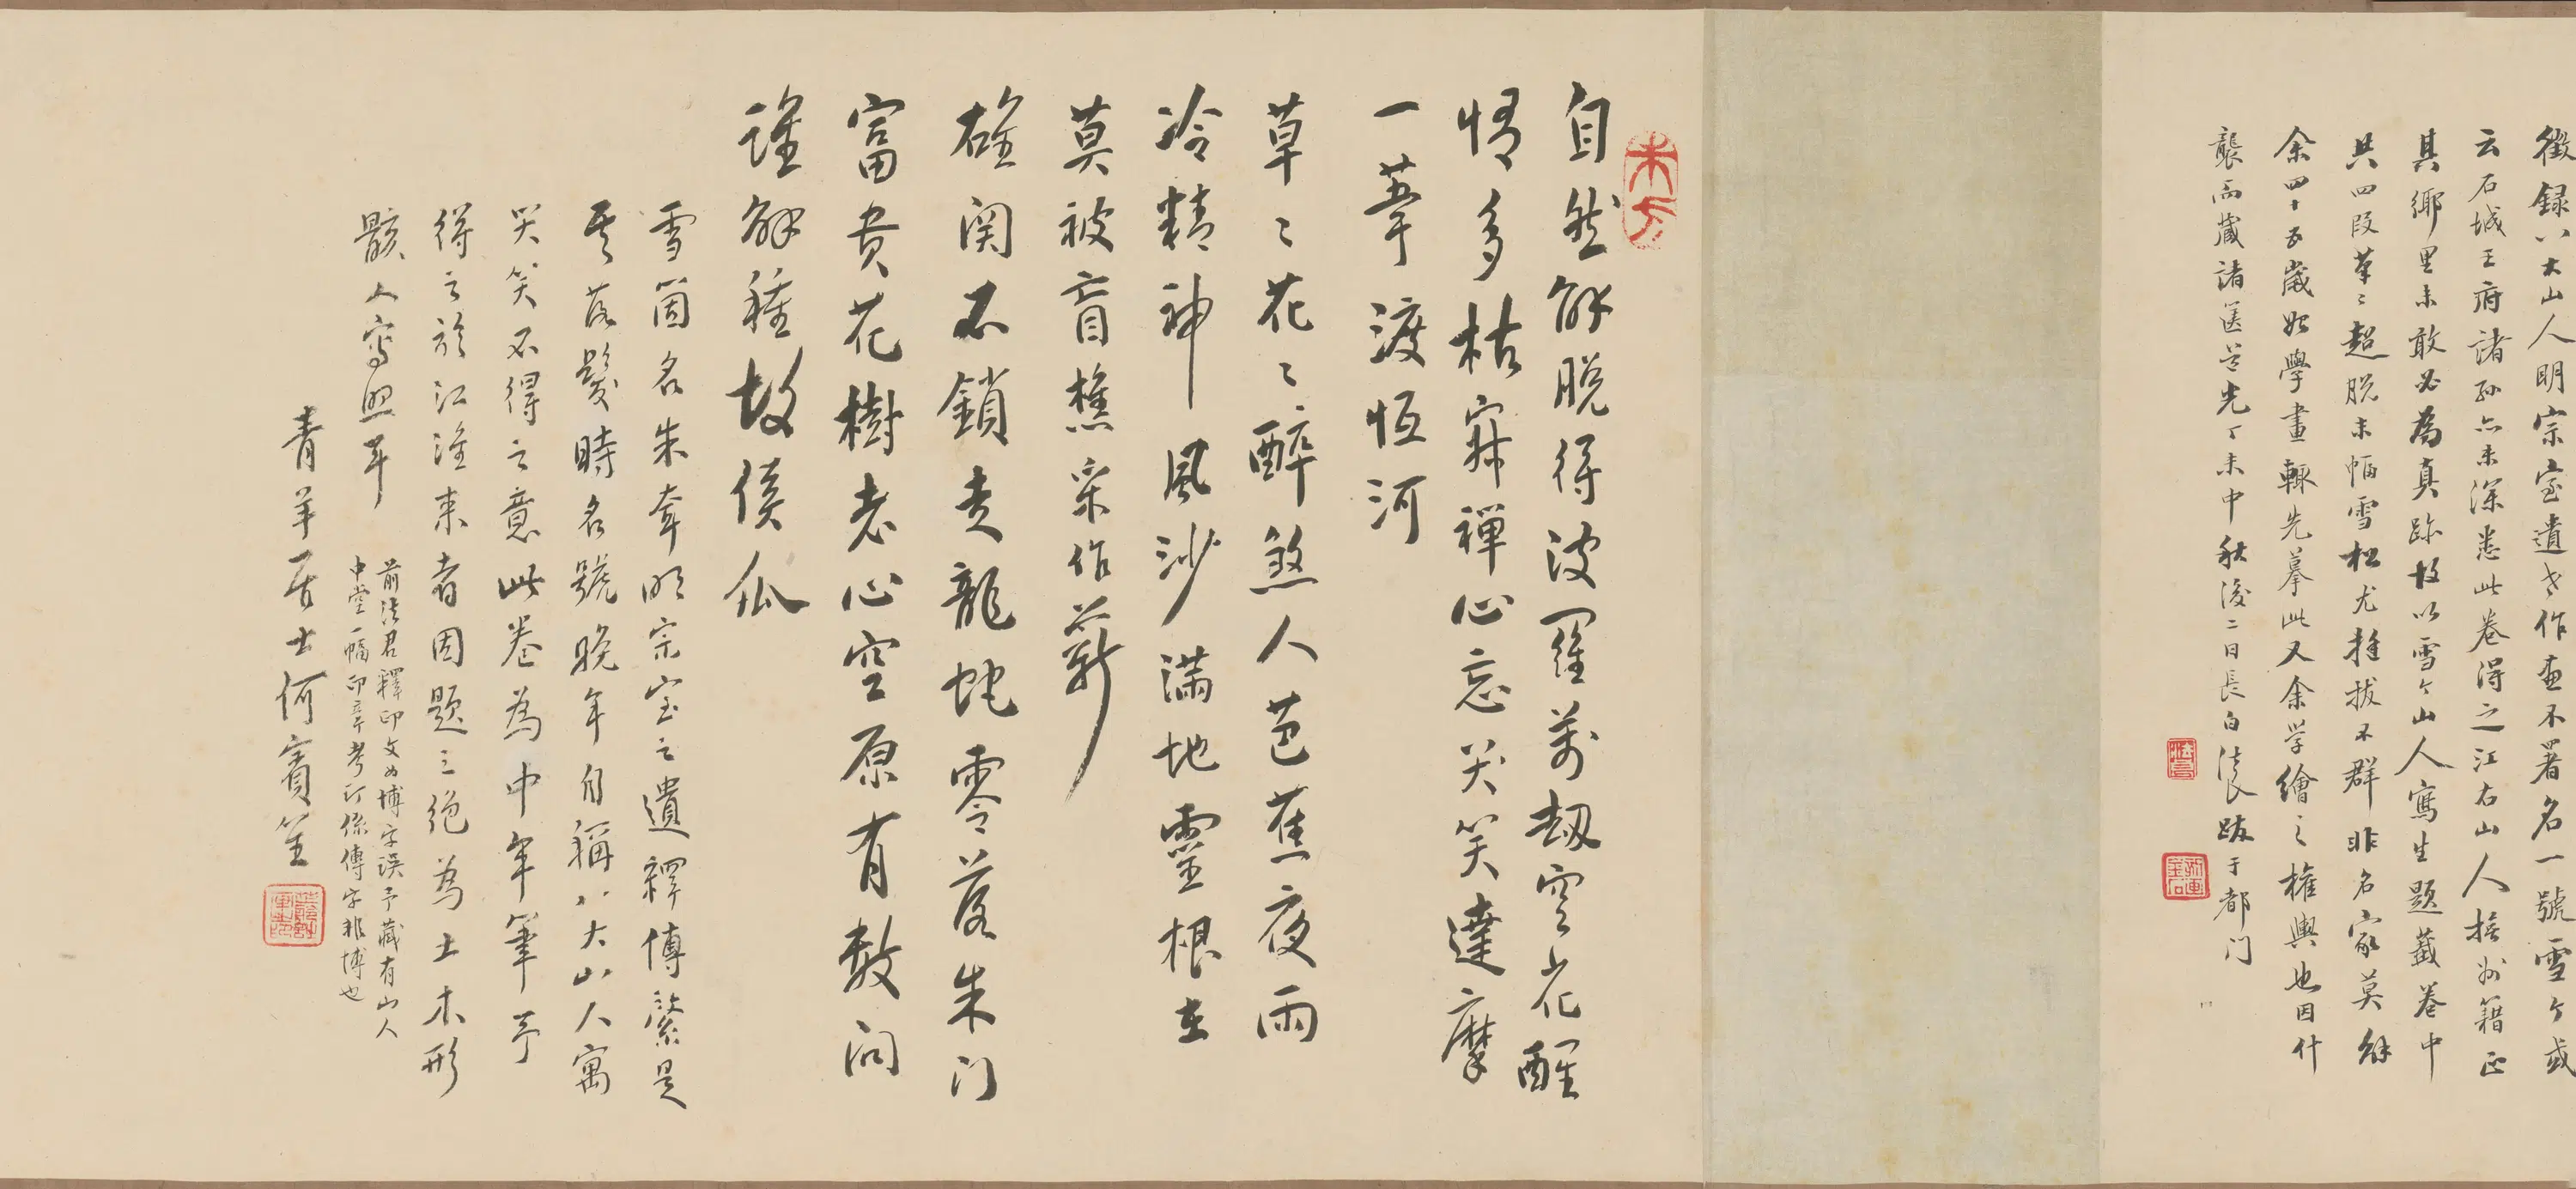 徵録八大山人明宗室遺老作畫不署名一號雪个或
云石城王府諸孫亦未深悉此卷得之江右山人 籍正
其鄉里未敢必為真跡故以雪个山人寫生題籤卷中
共四段草〻超脫末幅雪松尤挺拔不群非名家莫辦
余四十五歲始學畫輒先摹此又余學繪之權輿也因什
襲而藏諸篋 光丁未中秋後二日長白 跋于都门
自然解脫得波羅萬劫空花醒
情多枯寂禪心忘哭笑達摩
一葦渡恒河
草〻花〻醉煞人芭蕉夜雨
冷精神風沙滿地靈根在
莫被盲樵采作薪
雄関不鎖走龍蛇零落朱门
富贵花樹老心空原有数问
誰解種故侯瓜
雪箇名朱耷明宗室之遺釋傳綮是
其落髮時名號晚年自稱八大山人寓
哭笑不得之意此卷為中年筆予
得之於江淮来者因題三絕為土木形
骸人寫照耳
前法君釋印文為博字誤予藏有山人
中堂一幅印章考订係傳字非博也
青羊居士何賓笙